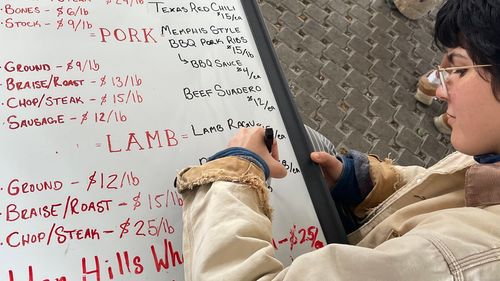 Bones - $6/lb
Stock - $9/lb
= PORK =
Ground - $9/lb
Braise/Roast - $13/lb
Chop/Steak - $15/lb
Sausage - $12/lb
= LAMB =
Ground - $12/lb
Braise/Roast - $15/lb
Chop/Steak - $25/lb
Hills
Texas Red Chili
$15/ea
Memphis Style
BBQ Pork Ribs
$15/lb
↳ BBQ Sauce
$4/ea
Beef Suadero
$12/ea
Lamb